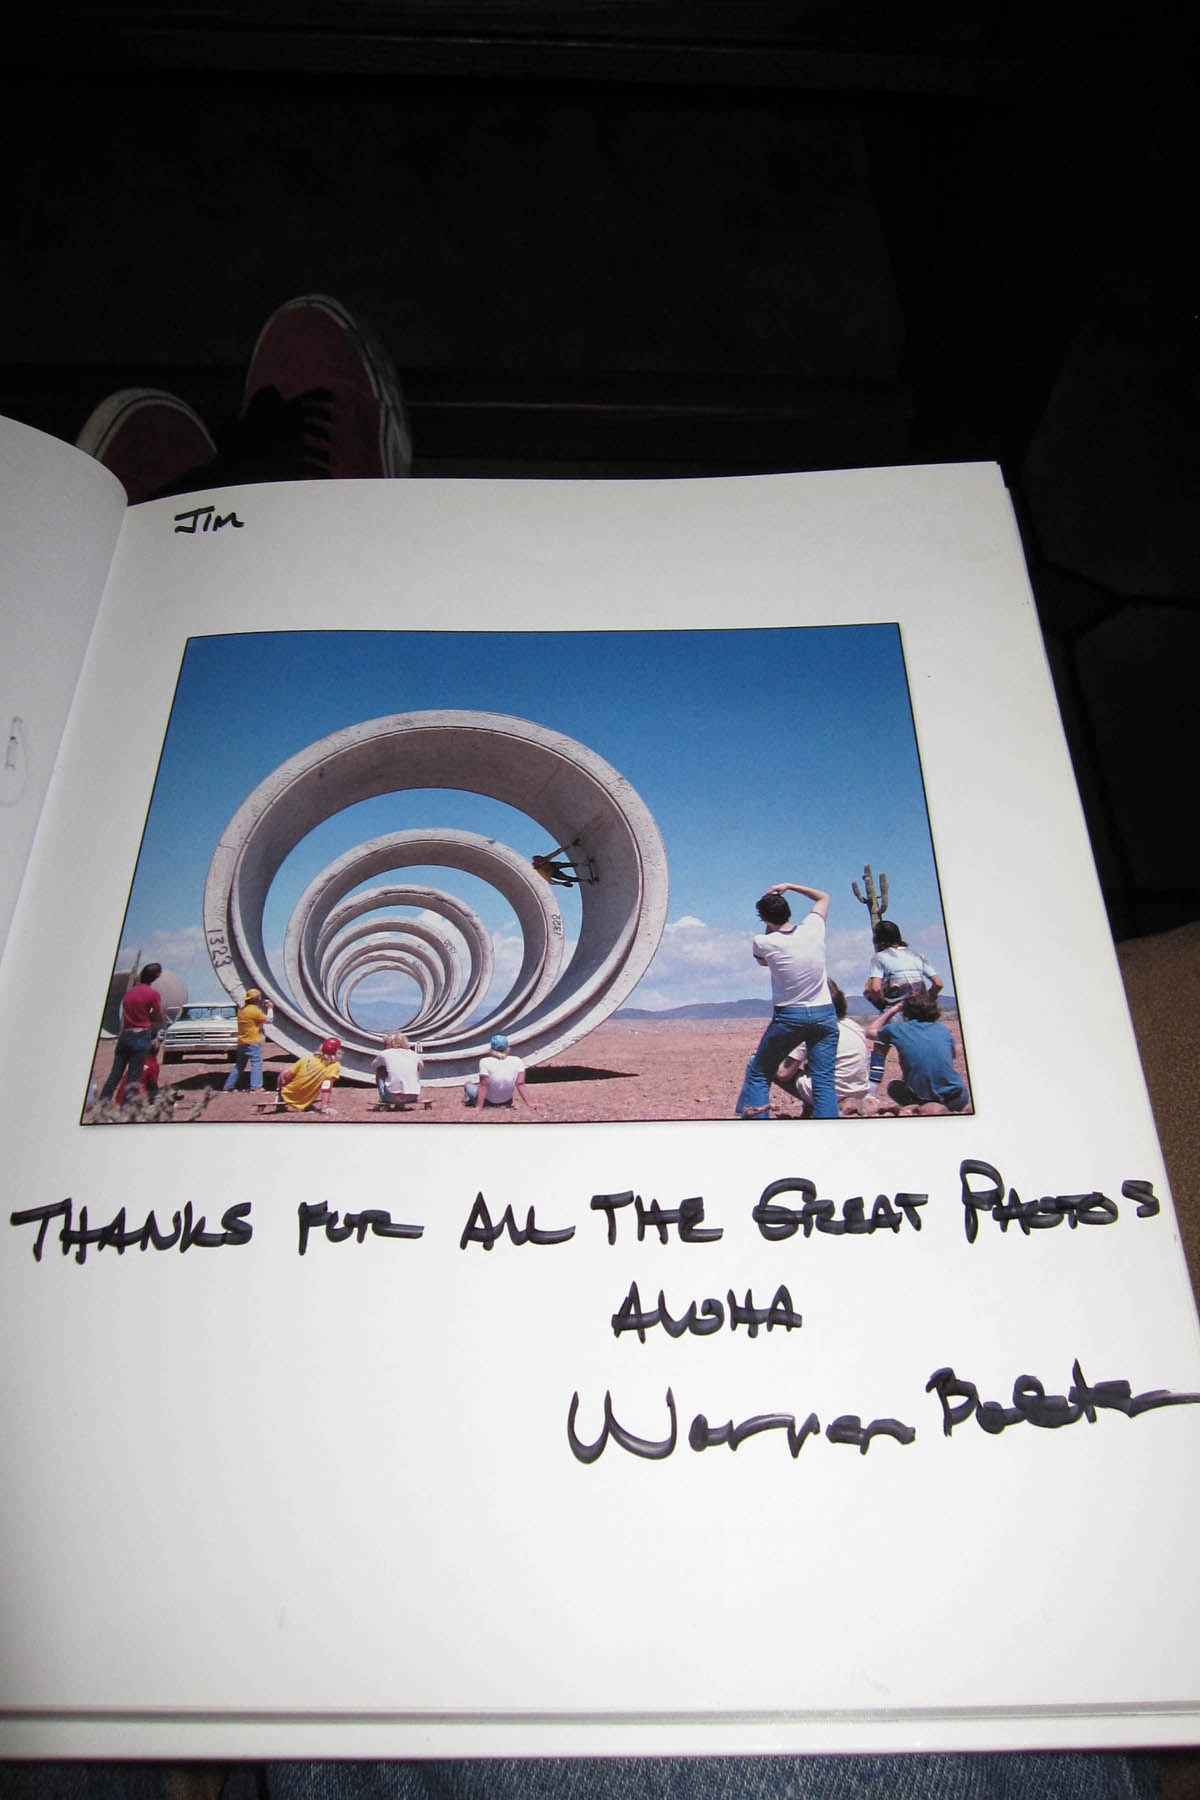 JIM
1323
1322
THANKS FOR ALL THE GREAT PHOTOS
ALOHA
Warren Bolster